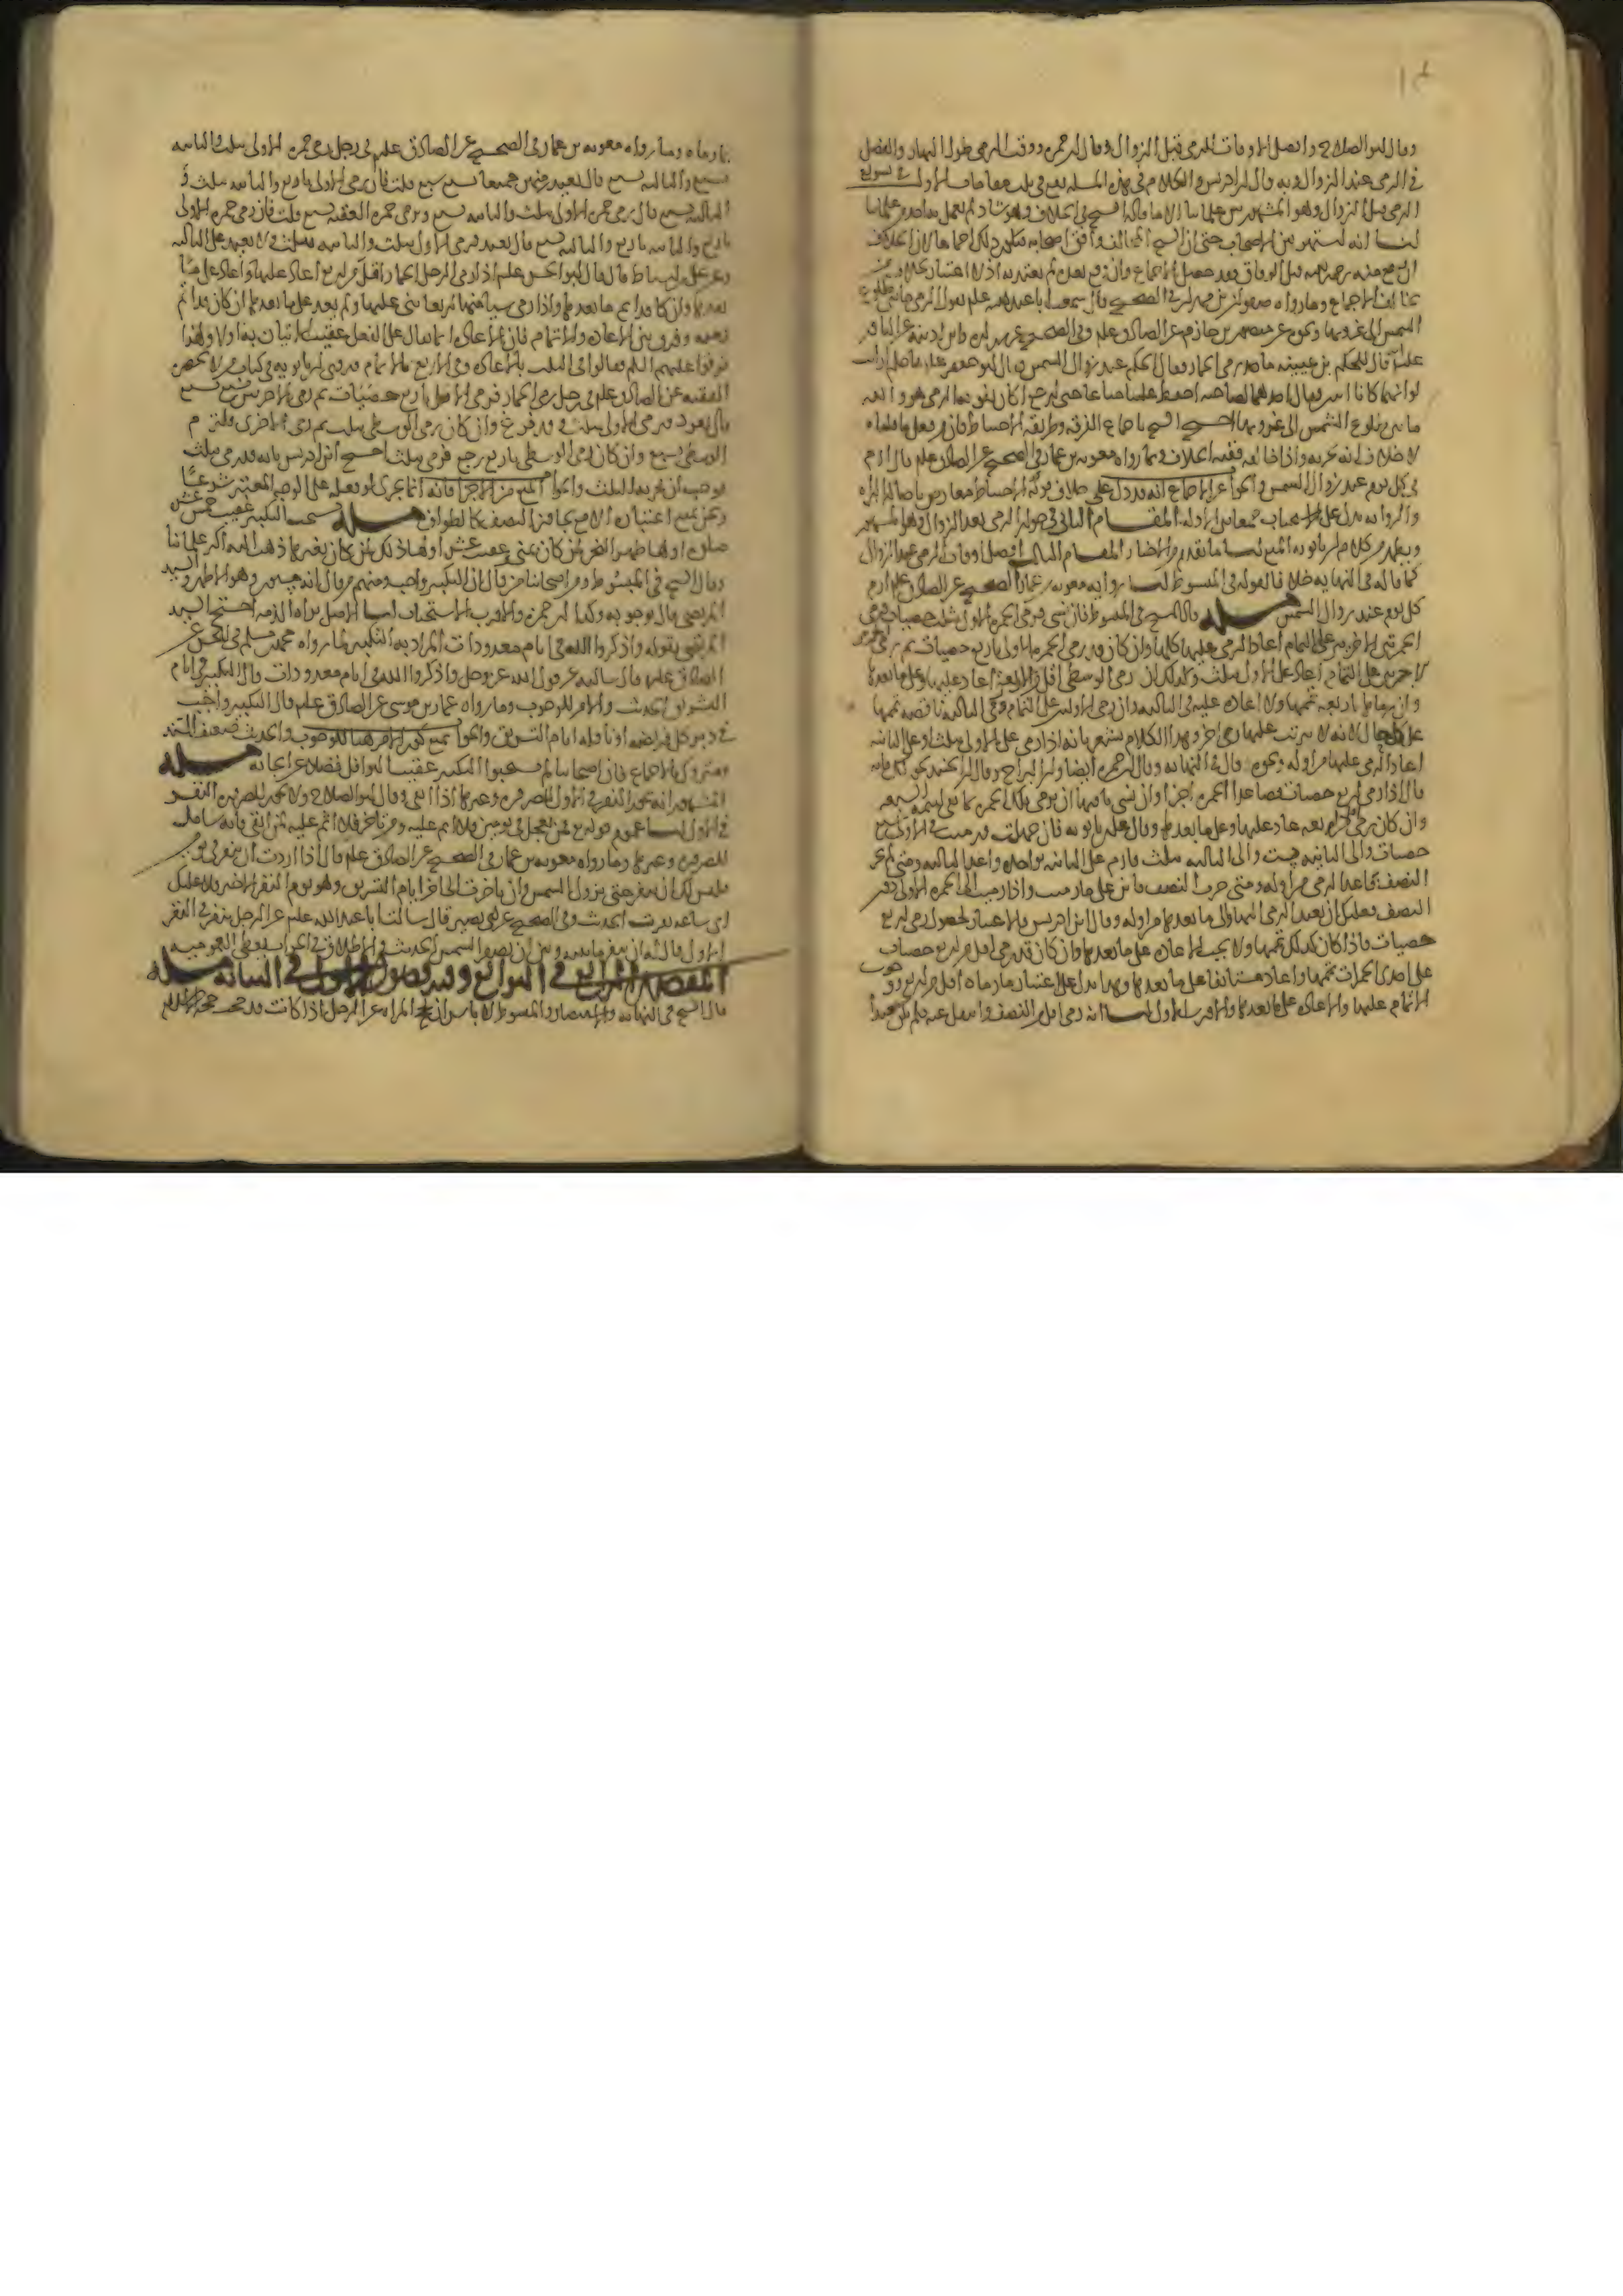 وقال ابو الصلاح وافضل الاوقات للرمي قبل الزوال وقال ابن حمزه ووقت الرمي طول النهار والفضل
في الرمي عند الزوال وبه قال ابن ادريس والكلام في هذه المسله يقع في ثلث مقامات الاول في تسويغ
الرمي قبل الزوال وهو المشهور بين علمائنا الا ما قاله الشيخ في الخلاف وهو شاذ لم يعمل به احد من علمائنا
لنا انه اشتهر بين الاصحاب حتى ان الشيخ المخالف وافق اصحابه فيكون ذلك اجماعا لان الخلاف
ان وقع منه رحمه الله قبل الوفاق فقد حصل الاجماع وان وقع بعده لم يعتد به اذ لا اعتبار بخلاف من
خالف الاجماع وما رواه صفوان بن مهران في الصحيح قال سمعت ابا عبد الله علم يقول الرمي ما بين طلوع
الشمس الى غروبها ونحوه عن منصور بن حازم عن الصادق علم وفي الصحيح عن وابن اذينه عن الباقر
علم انه قال للحكم بن عيينه ما حد رمي الجمار فقال الحكم عند زوال الشمس فقال ابو جعفر علم يا حكم ارايت
لو انهما كانا اثنين فقال احدهما لصاحبه احفظ علينا متاعنا حتى ارجع اكان يفوته الرمي هو والله
ما بين طلوع الشمس الى غروبها احتج الشيخ باجماع الفرقه وطريقه الاحتياط فان من فعل ما قلناه
لا خلاف انه يجزيه واذا خالفه ففيه الخلاف وبما رواه معويه بن عمار في الصحيح عن الصادق علم قال ارم
في كل يوم عند زوال الشمس والجواب عن الاجماع انه قد دل على خلاف قوله والاحتياط معارض باصاله البراه
والروايه تدل على الاستحباب جمعا بين الادله المقام الثاني في جواز الرمي بعد الزوال وهو المشهور
ويظهر من كلام ابن بابويه المنع لنا ما تقدم من الاخبار المقام الثالث افضل اوقات الرمي عند الزوال
كما قاله في النهايه خلافا لقوله في المبسوط لنا روايه معويه بن عمار الصحيح عن الصادق علم ارم
كل يوم عند زوال الشمس مسله قال الشيخ في المبسوط فان نسي فرمى الجمره الاولى بثلث حصيات ورمى
الجمرتين الاخرتين على التمام اعاد الرمي عليها كلها وان كان قد رمى الجمره الاولى باربع حصيات ثم رمى الجمرتين
الاخرتين على التمام اعاد على الاولى بثلث وكذلك ان رمى الوسطى اقل من اربعه اعاد عليها وعلى ما بعدها
وان رماها باربعه تممها ولا اعاده عليه في الثالثه وان رمى الاولتين على التمام ورمى الثالثه ناقصه تممها
على كل حال لانه لا يترتب عليها رمي اخر وهذا الكلام يشعر بانه اذا رمى على الاولى بثلث او على الثانيه
اعاد الرمي عليها من اوله ونحوه قال في النهايه وقال ابن حمزه ايضا وابن البراج وقال ابن الجنيد نحو ذلك فانه
قال اذا رمى اربع حصيات فصاعدا الجمره اجزا وان نسي باقيها ان يرمي تلك الجمره بما بقي ليتمه السبعه
وان كان رمى اقل من اربعه عاد عليها وعلى ما بعدها وقال علي بن بابويه فان جهلت ورميت الى الاولى بسبع
حصيات والى الثانيه بست والى الثالثه بثلث فارم على الثانيه بواحده واعد الثالثه ومتى لم تجز
النصف فاعد الرمي من اوله ومتى جزت النصف فابن على ما رميت واذا رميت الى الجمره الاولى دون
النصف فعليك ان تعيد الرمي اليها والى ما بعدها من اوله وقال ابن ادريس بالاعتبار بحصول رمي اربع
حصيات فاذا كان كذلك تممها ولا يجب الاعاده على ما بعدها وان كان قد رمى اقل من اربع حصيات
على احدى الجمرات تممها واعاد مستانفا على ما بعدها وهذا يدل على اعتبار ما رماه اقل من اربع ووجوب
الاتمام عليها والاعاده على ما بعدها والاقرب الاول لنا انه رمى اقل من النصف
ما رماه وما رواه معويه بن عمار في الصحيح عن الصادق علم في رجل رمى الجمره الاولى بثلث والثانيه
بسبع والثالثه بسبع قال يعيد يرميهن جميعا بسبع سبع قلت فان رمى الاولى باربع والثانيه بثلث و
الثالثه بسبع قال يرمي جمره الاولى بثلث والثانيه بسبع ويرمي جمره العقبه بسبع قلت فان رمى جمره الاولى
باربع والثانيه باربع والثالثه بسبع قال يعيد فيرمي الاولى بثلث والثانيه بثلث ولا يعيد على الثالثه
وعن علي بن اسباط قال قال ابو الحسن علم اذا رمى الرجل الجمار اقل من اربع اعاد عليها واعاد على ما
بعدها وان كان قد اتم ما بعدها واذا رمى شيئا منها اربعا بنى عليها ولم يعد على ما بعدها ان كان قد اتم
رميه وفرق بين الاعاده والاتمام فان الاعاده انما يقال على الفعل عقيب الاتيان به اولا ولهذا
فرقوا عليهم السلم فقالوا في الثلث بالاعاده وفي الاربع بالاتمام وروى ابن بابويه في كتاب من لا يحضره
الفقيه عن الصادق علم في رجل رمى الجمار فرمى الاولى باربع حصيات ثم رمى الاخرتين بسبع سبع
قال يعود فيرمي الاولى بثلث وقد فرغ وان كان رمى الوسطى بثلث ثم رمى الاخرى فليرم
الوسطى بسبع وان كان رمى الوسطى باربع رجع فرمى بثلث احتج ابن ادريس بانه قد رمى بثلث
فوجب ان يجزيه الثلث والجواب المنع من الاجزا فانه انما يجزي لو فعله على الوجه المعتبر شرعا
ونحن نمنع اعتباره الا مع تجاوز النصف كالطواف مسله يستحب التكبير عقيب خمس عشره
صلوه اولها ظهر النحر لمن كان بمنى وعقيب عشر اولها ذلك لمن كان بغيرها ذهب اليه اكثر علمائنا
وقال الشيخ في المبسوط ومن اصحابنا من قال ان التكبير واجب ومنهم من قال انه مسنون وهو الاظهر والسيد
المرتضى قال بوجوبه وكذا ابن حمزه والاقرب الاستحباب لنا الاصل براه الذمه احتج السيد
المرتضى بقوله واذكروا الله في ايام معدودات المراد به التكبير لما رواه محمد بن مسلم في الصحيح عن
الصادق علم قال سالته عن قول الله عز وجل واذكروا الله في ايام معدودات قال التكبير في ايام
التشريق الحديث والامر للوجوب وما رواه عمار بن موسى عن الصادق علم قال التكبير واجب
في دبر كل فريضه او نافله ايام التشريق والجواب بمنع كون الامر هنا للوجوب والحديث ضعيف السند
ومتروك بالاجماع فان اصحابنا لم يستحبوا التكبير عقيب النوافل فضلا عن ايجابه مسله
المشهور انه يجوز النفر في الاول للصروره وغيرها اذا اتقى وقال ابو الصلاح ولا يجوز للصروره النفر
في الاول لنا عموم قوله تع فمن تعجل في يومين فلا اثم عليه ومن تاخر فلا اثم عليه لمن اتقى فانه شامل
للصروره وغيرها وما رواه معويه بن عمار في الصحيح عن الصادق علم قال اذا اردت ان تنفر في يومين
فليس لك ان تنفر حتى تزول الشمس وان تاخرت الى اخر ايام التشريق وهو يوم النفر الاخير فلا عليك
اي ساعه نفرت الحديث وفي الصحيح عن ابي بصير قال سالت ابا عبد الله علم عن الرجل ينفر في النفر
الاول قال له ان ينفر ما بينه وبين ان تصفر الشمس الحديث والاطلاق في الجواب يعطي العموميه
المقصد الرابع في التوابع وفيه فصول الاول في مسله
قال الشيخ في النهايه والاقتصاد والمبسوط لا باس ان تحج المراه عن الرجل اذا كانت قد حجت حجه الاسلام